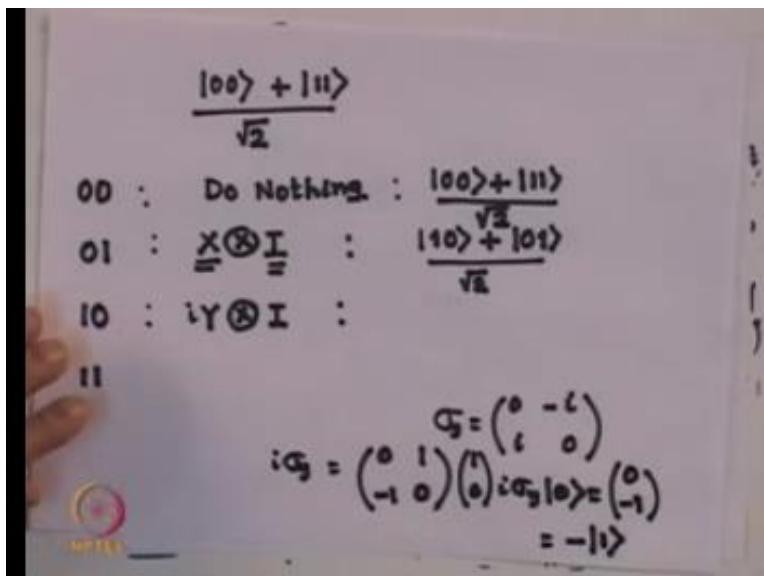 |00⟩ + |11⟩
√2
00 : Do Nothing : |00⟩+|11⟩
√2
01 : X⊗I : |10⟩ + |01⟩
√2
10 : iY⊗I :
11
σy = (0 -i
i 0)
iσy = (0 1
-1 0) (1
0) iσy|0⟩ = (0
-1)
= -|1⟩
NPTEL